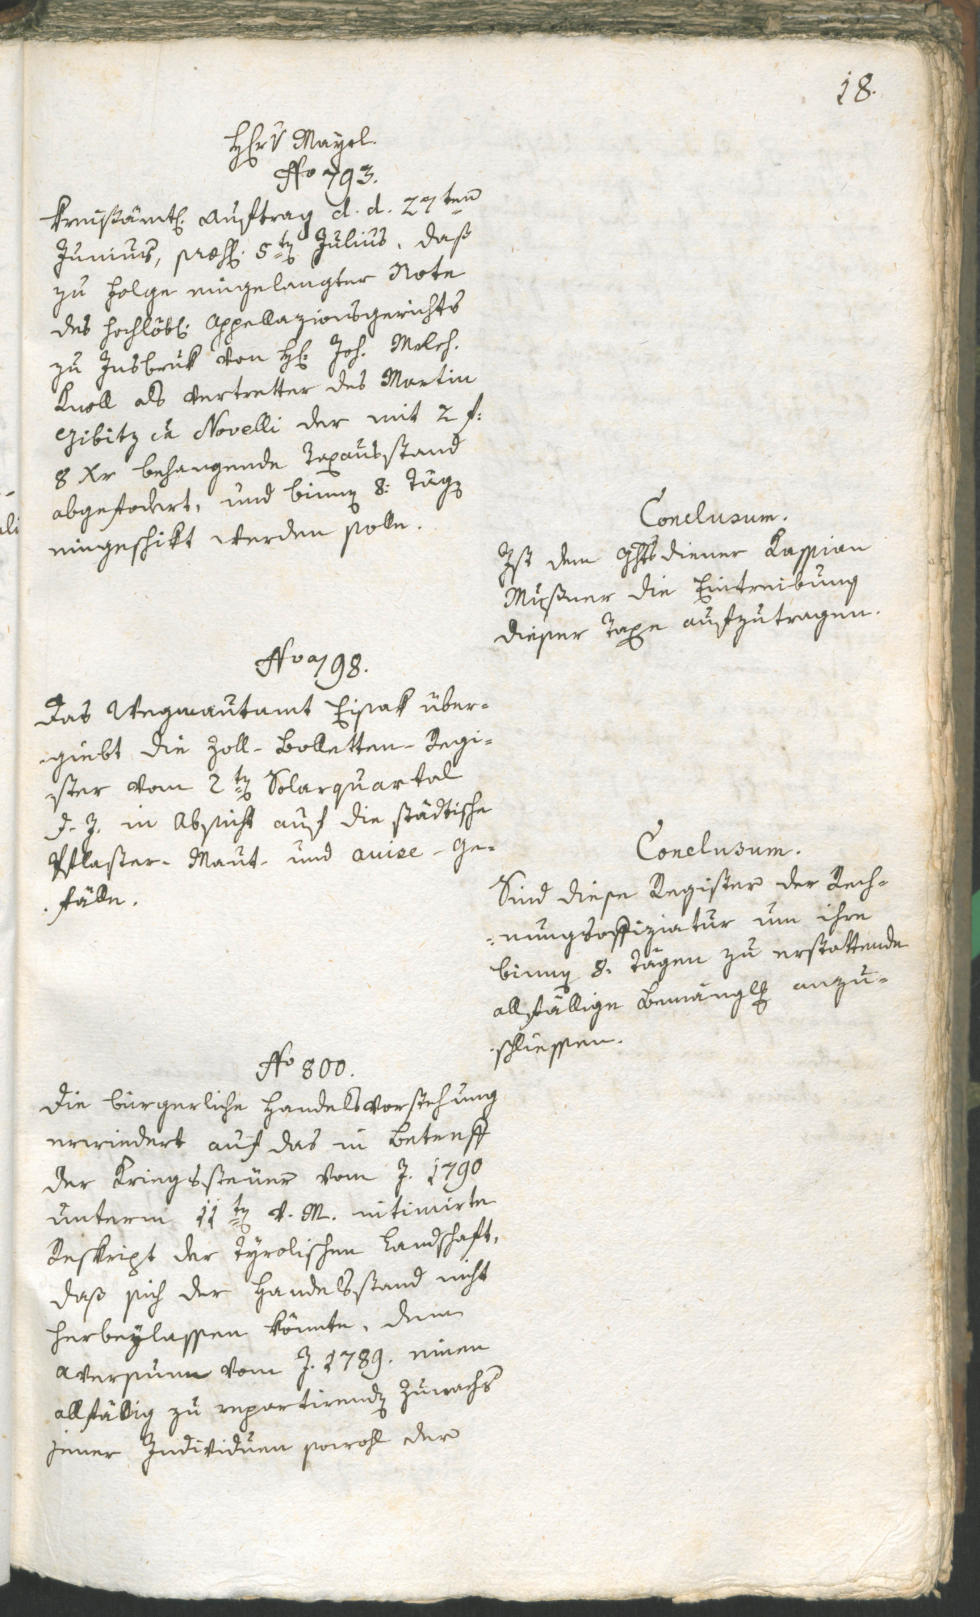 18.
Herr v Mayrl.
No 793.
Kreisämtl. Auftrag d. d. 27ten
Junius, præs. 5ten Julius, daß
zu Folge eingelangter Note
des hochlöbl. Appellazionsgerichts
zu Insbruk von H: Joh. Melch.
Knoll als Vertretter des Martin
Gibitz in Novelli der mit 2 f:
8 Xr behangende Taxausstand
abgefodert, und binnen 8: Tägen
eingeschikt werden solle.
Conclusum.
Ist dem Ghtsdiener Kassian
Mußner die Eintreibung
dieser Taxe aufzutragen.
No 798.
Das Wegmautamt Eisak über-
-giebt die Zoll-Bolletten-Regi-
ster vom 2ten Solarquartal
d. J. in Absicht auf die städtische
Pflaster-Maut- und avise-Ge-
fälle.
Conclusum.
Sind diese Register der Rech-
-nungsoffiziatur um ihre
binnen 8. Tägen zu erstattende
allfällige Bemänglgen anzu-
schliessen.
No 800.
Die bürgerliche Handelsvorstehung
erwiedert auf das in Betreff
der Kriegssteuer vom J. 1790
unterm 11ten v. M. intimirte
Reskript der Tyrolischen Landschaft,
daß sich der Handelsstand nicht
herbeylassen könnte, dem
aversum vom J. 1789. einen
allfällig zu repartirenden Zuwachs
jener Individuen sowohl der